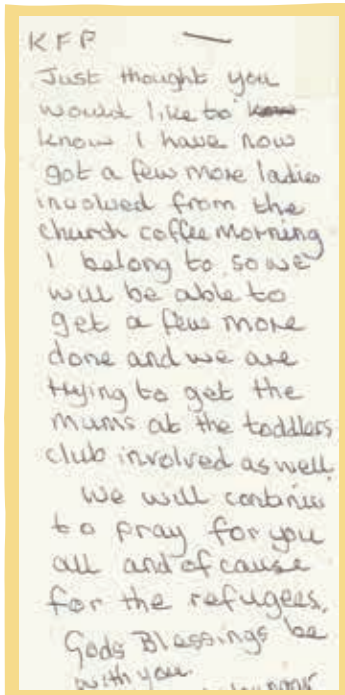 KFP —
Just thought you
would like to know
know I have now
got a few more ladies
involved from the
church coffee morning
I belong to so we
will be able to
get a few more
done and we are
trying to get the
mums at the toddlers
club involved as well.
We will continue
to pray for you
all and of cause
for the refugees.
Gods Blessings be
with you.